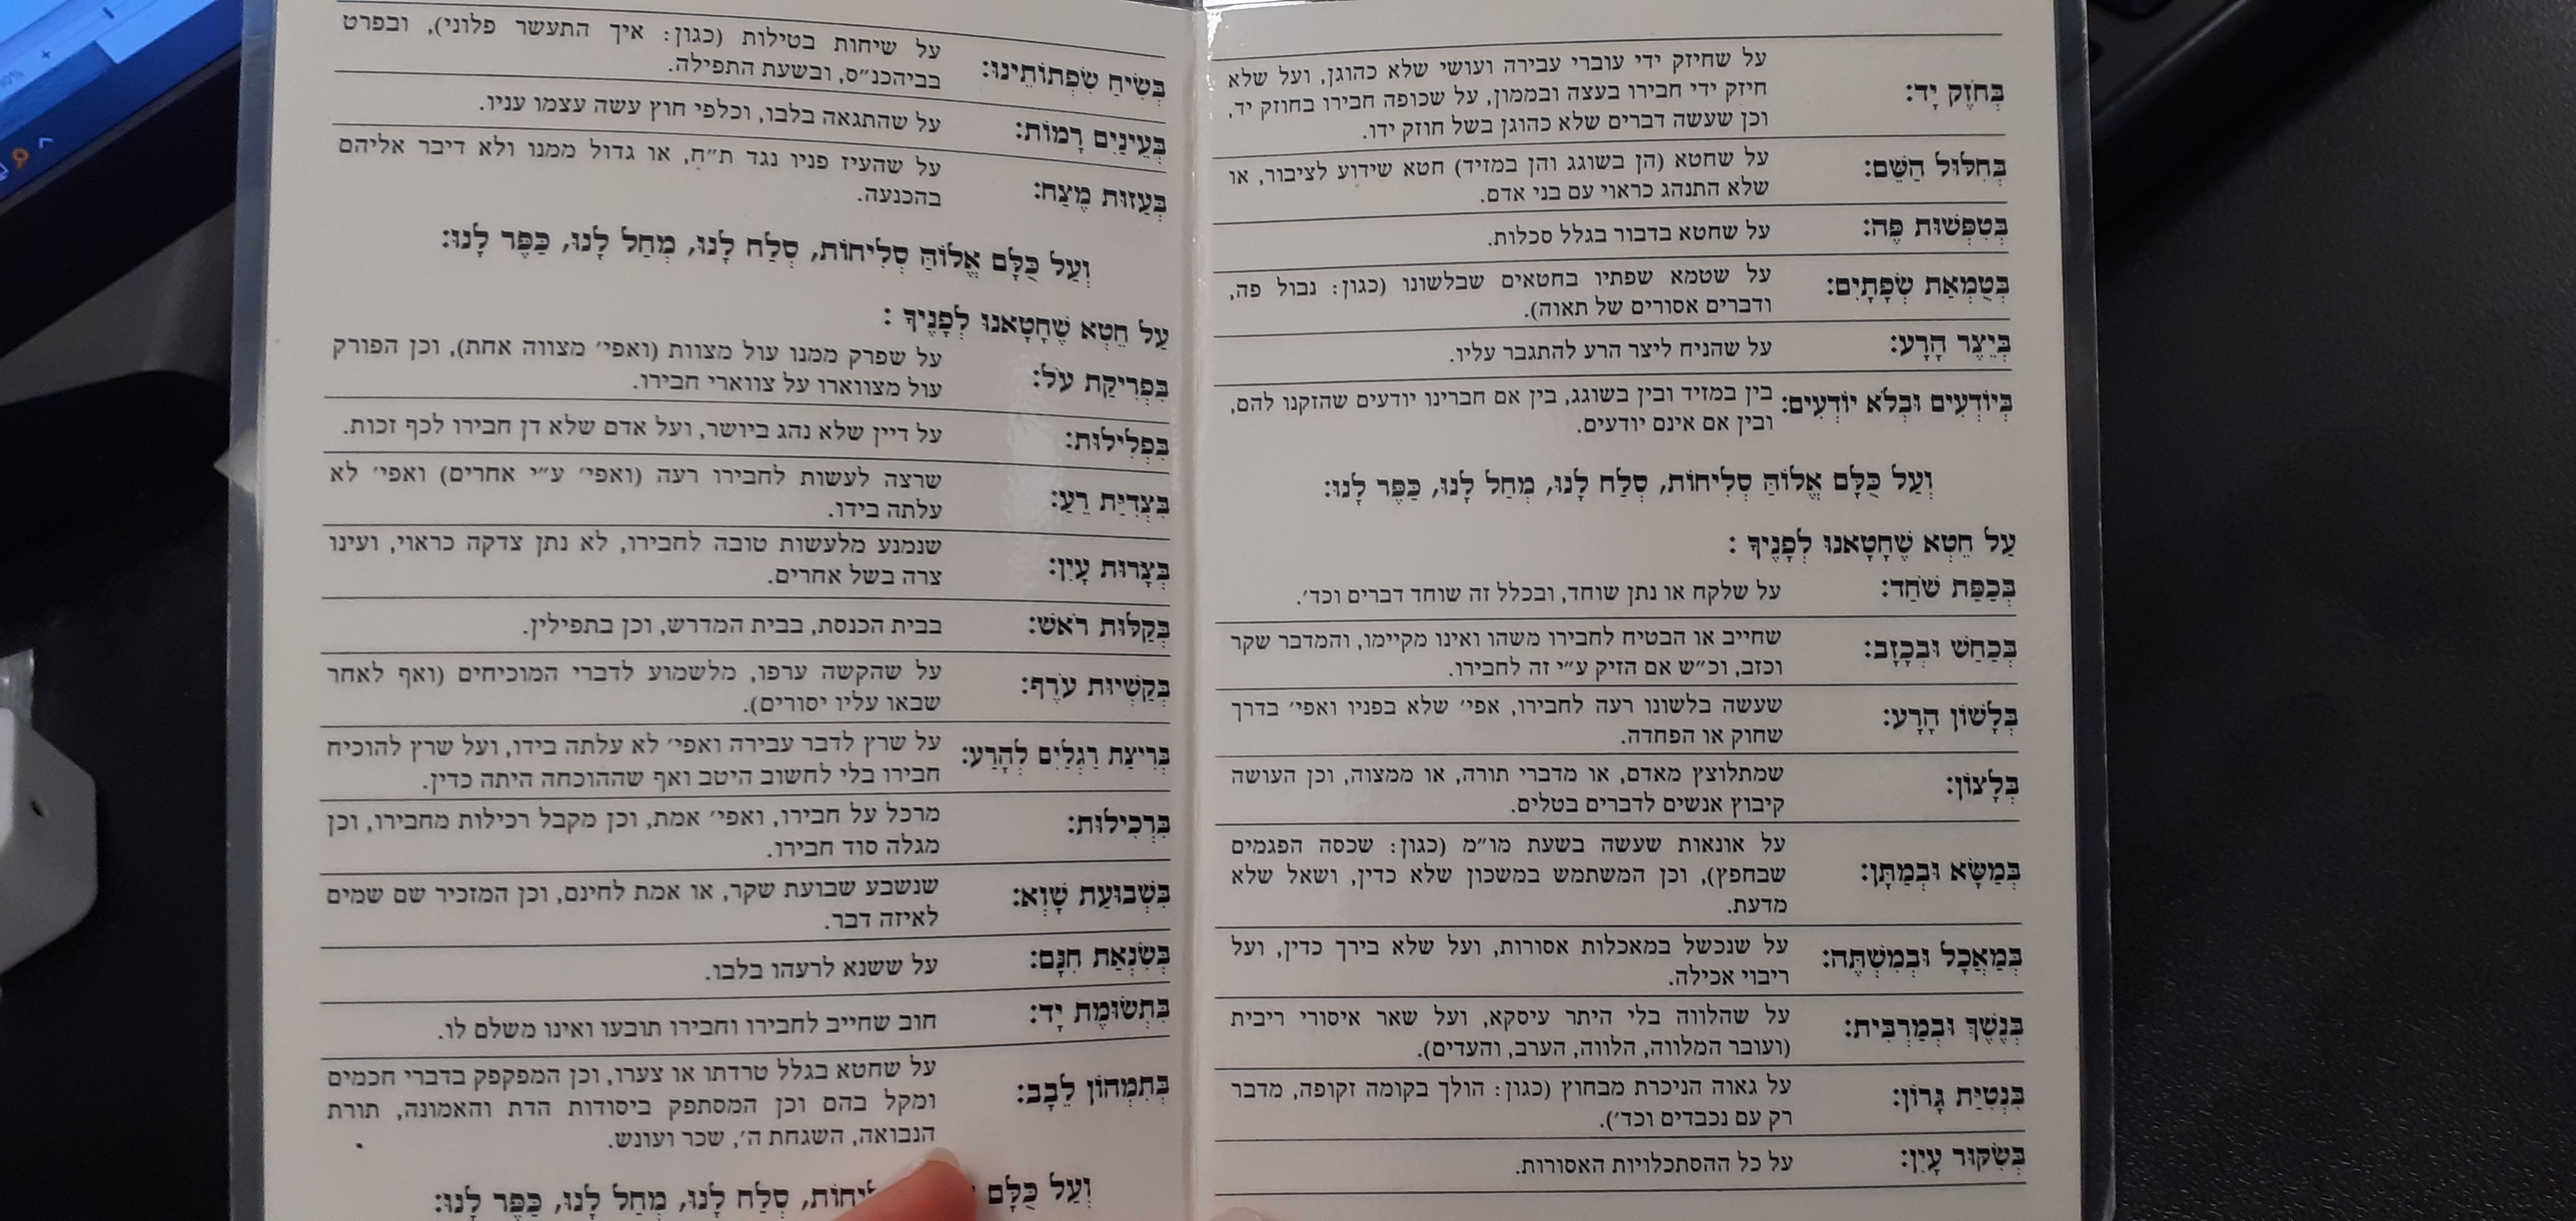 בְּחֹזֶק יָד: על שחיזק ידי עוברי עבירה ועושי שלא כהוגן, ועל שלא
חיזק ידי חבירו בעצה ובממון, על שכופה חבירו בחוזק יד,
וכן שעשה דברים שלא כהוגן בשל חוזק ידו.
בְּחִלּוּל הַשֵּׁם: על שחטא (הן בשוגג והן במזיד) חטא שידוע לציבור, או
שלא התנהג כראוי עם בני אדם.
בְּטִפְּשׁוּת פֶּה: על שחטא בדבור בגלל סכלות.
בְּטֻמְאַת שְׂפָתָיִם: על שטמא שפתיו בחטאים שבלשונו (כגון: נבול פה,
ודברים אסורים של תאוה).
בְּיֵצֶר הָרָע: על שהניח ליצר הרע להתגבר עליו.
בְּיוֹדְעִים וּבְלֹא יוֹדְעִים: בין במזיד ובין בשוגג, בין אם חברינו יודעים שהזקנו להם,
ובין אם אינם יודעים.
וְעַל כֻּלָּם אֱלוֹהַּ סְלִיחוֹת, סְלַח לָנוּ, מְחַל לָנוּ, כַּפֶּר לָנוּ:
עַל חֵטְא שֶׁחָטָאנוּ לְפָנֶיךָ :
בְּכַפַּת שֹׁחַד: על שלקח או נתן שוחד, ובכלל זה שוחד דברים וכד׳.
בְּכַחַשׁ וּבְכָזָב: שחייב או הבטיח לחבירו משהו ואינו מקיימו, והמדבר שקר
וכזב, וכ״ש אם הזיק ע״י זה לחבירו.
בְּלָשׁוֹן הָרָע: שעשה בלשונו רעה לחבירו, אפי׳ שלא בפניו ואפי׳ בדרך
שחוק או הפחדה.
בְּלָצוֹן: שמתלוצץ מאדם, או מדברי תורה, או ממצוה, וכן העושה
קיבוץ אנשים לדברים בטלים.
בְּמַשָּׂא וּבְמַתָּן: על אונאות שעשה בשעת מו״מ (כגון: שכסה הפגמים
שבחפץ), וכן המשתמש במשכון שלא כדין, ושאל שלא
מדעת.
בְּמַאֲכָל וּבְמִשְׁתֶּה: על שנכשל במאכלות אסורות, ועל שלא בירך כדין, ועל
ריבוי אכילה.
בְּנֶשֶׁךְ וּבְמַרְבִּית: על שהלווה בלי היתר עיסקא, ועל שאר איסורי ריבית
(ועובר המלווה, הלווה, הערב, והעדים).
בִּנְטִיַּת גָּרוֹן: על גאוה הניכרת מבחוץ (כגון: הולך בקומה זקופה, מדבר
רק עם נכבדים וכד׳).
בְּשִׂקּוּר עָיִן: על כל ההסתכלויות האסורות.
בְּשִׂיחַ שִׂפְתוֹתֵינוּ: על שיחות בטילות (כגון: איך התעשר פלוני), ובפרט
בביהכנ״ס, ובשעת התפילה.
בְּעֵינַיִם רָמוֹת: על שהתגאה בלבו, וכלפי חוץ עשה עצמו עניו.
בְּעַזּוּת מֶצַח: על שהעיז פניו נגד ת״ח, או גדול ממנו ולא דיבר אליהם
בהכנעה.
וְעַל כֻּלָּם אֱלוֹהַּ סְלִיחוֹת, סְלַח לָנוּ, מְחַל לָנוּ, כַּפֶּר לָנוּ:
עַל חֵטְא שֶׁחָטָאנוּ לְפָנֶיךָ :
בִּפְרִיקַת עֹל: על שפרק ממנו עול מצוות (ואפי׳ מצווה אחת), וכן הפורק
עול מצווארו על צווארי חבירו.
בִּפְלִילוּת: על דיין שלא נהג ביושר, ועל אדם שלא דן חבירו לכף זכות.
בִּצְדִיַּת רֵעַ: שרצה לעשות לחבירו רעה (ואפי׳ ע״י אחרים) ואפי׳ לא
עלתה בידו.
בְּצָרוּת עָיִן: שנמנע מלעשות טובה לחבירו, לא נתן צדקה כראוי, ועינו
צרה בשל אחרים.
בְּקַלּוּת רֹאשׁ: בבית הכנסת, בבית המדרש, וכן בתפילין.
בְּקַשְׁיוּת עֹרֶף: על שהקשה ערפו, מלשמוע לדברי המוכיחים (ואף לאחר
שבאו עליו יסורים).
בְּרִיצַת רַגְלַיִם לְהָרַע: על שרץ לדבר עבירה ואפי׳ לא עלתה בידו, ועל שרץ להוכיח
חבירו בלי לחשוב היטב ואף שההוכחה היתה כדין.
בִּרְכִילוּת: מרכל על חבירו, ואפי׳ אמת, וכן מקבל רכילות מחבירו, וכן
מגלה סוד חבירו.
בִּשְׁבוּעַת שָׁוְא: שנשבע שבועת שקר, או אמת לחינם, וכן המזכיר שם שמים
לאיזה דבר.
בְּשִׂנְאַת חִנָּם: על ששנא לרעהו בלבו.
בִּתְשׂוּמֶת יָד: חוב שחייב לחבירו וחבירו תובעו ואינו משלם לו.
בְּתִמְהוֹן לֵבָב: על שחטא בגלל טרדתו או צערו, וכן המפקפק בדברי חכמים
ומקל בהם וכן המסתפק ביסודות הדת והאמונה, תורת
הנבואה, השגחת ה׳, שכר ועונש.
וְעַל כֻּלָּם סְלַח לָנוּ, מְחַל לָנוּ, כַּפֶּר לָנוּ: